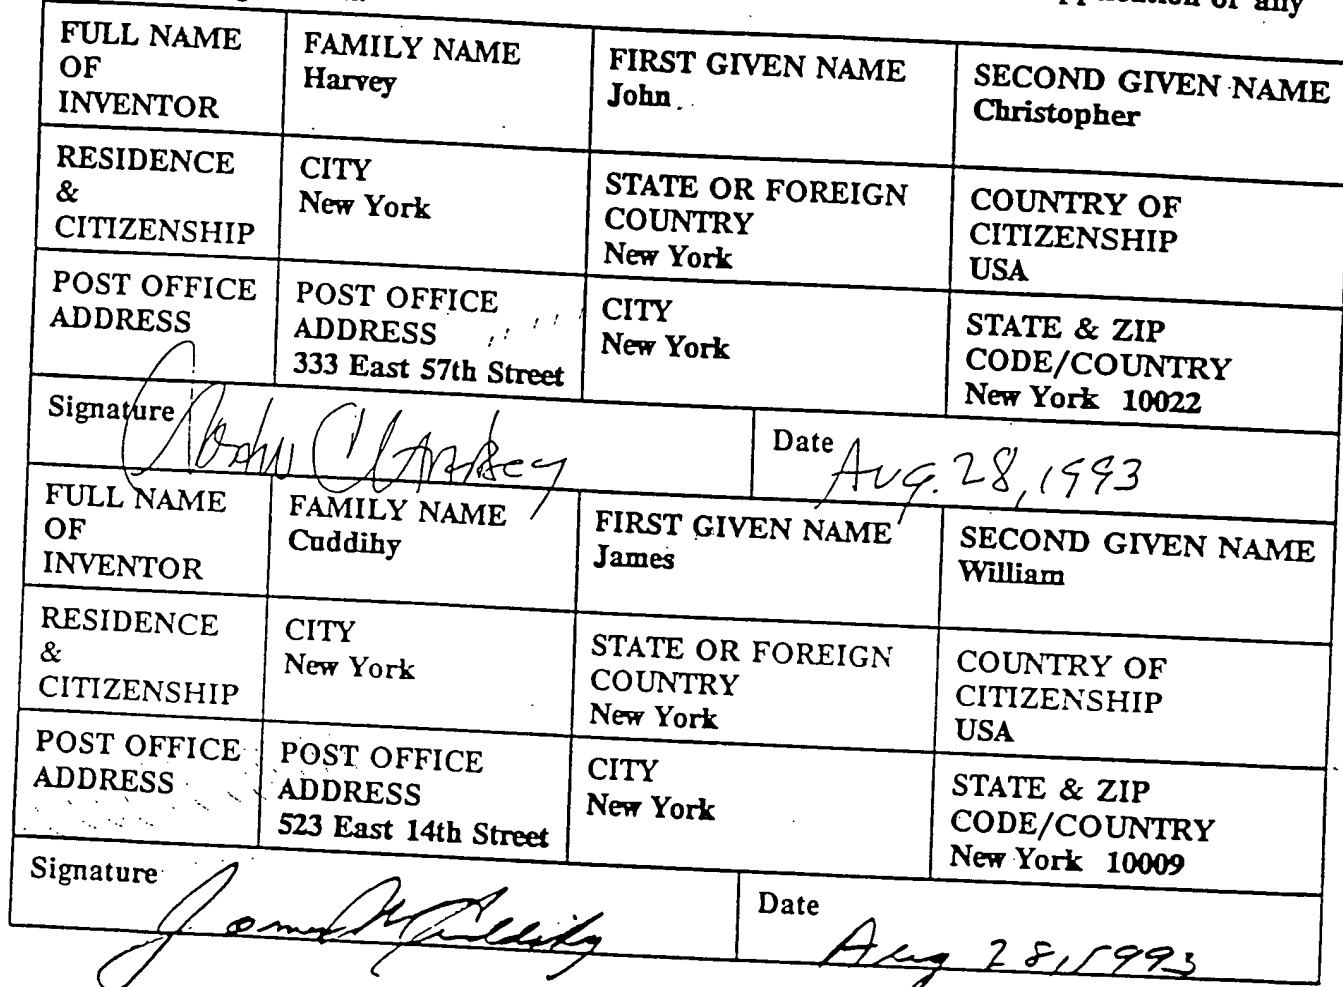 application or any
FULL NAME
OF
INVENTOR
FAMILY NAME
Harvey
FIRST GIVEN NAME
John
SECOND GIVEN NAME
Christopher
RESIDENCE
&
CITIZENSHIP
CITY
New York
STATE OR FOREIGN
COUNTRY
New York
COUNTRY OF
CITIZENSHIP
USA
POST OFFICE
ADDRESS
POST OFFICE
ADDRESS
333 East 57th Street
CITY
New York
STATE & ZIP
CODE/COUNTRY
New York 10022
Signature John C Harvey
Date Aug. 28, 1993
FULL NAME
OF
INVENTOR
FAMILY NAME
Cuddihy
FIRST GIVEN NAME
James
SECOND GIVEN NAME
William
RESIDENCE
&
CITIZENSHIP
CITY
New York
STATE OR FOREIGN
COUNTRY
New York
COUNTRY OF
CITIZENSHIP
USA
POST OFFICE
ADDRESS
POST OFFICE
ADDRESS
523 East 14th Street
CITY
New York
STATE & ZIP
CODE/COUNTRY
New York 10009
Signature James W Cuddihy
Date Aug 28, 1993